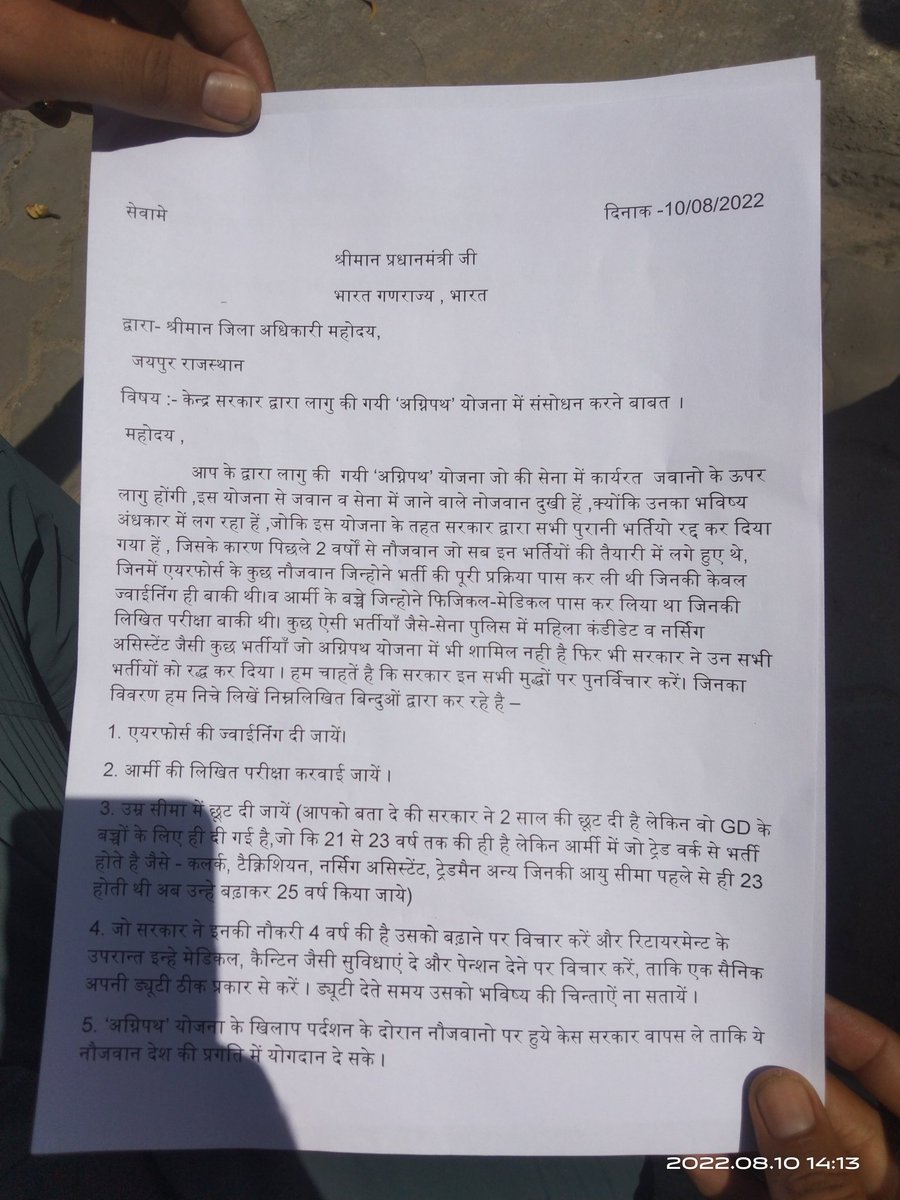 सेवामे
दिनाक -10/08/2022
श्रीमान प्रधानमंत्री जी
भारत गणराज्य , भारत
द्वारा- श्रीमान जिला अधिकारी महोदय,
जयपुर राजस्थान
विषय :- केन्द्र सरकार द्वारा लागु की गयी ‘अग्निपथ’ योजना में संसोधन करने बाबत ।
महोदय ,
आप के द्वारा लागु की गयी ‘अग्निपथ’ योजना जो की सेना में कार्यरत जवानो के ऊपर
लागु होंगी ,इस योजना से जवान व सेना में जाने वाले नोजवान दुखी हें ,क्योंकि उनका भविष्य
अंधकार में लग रहा हें ,जोकि इस योजना के तहत सरकार द्वारा सभी पुरानी भर्तियो रद्द कर दिया
गया हें , जिसके कारण पिछले 2 वर्षो से नौजवान जो सब इन भर्तियों की तैयारी में लगे हुए थे,
जिनमें एयरफोर्स के कुछ नौजवान जिन्होने भर्ती की पूरी प्रक्रिया पास कर ली थी जिनकी केवल
ज्वाईनिंग ही बाकी थी।व आर्मी के बच्चे जिन्होने फिजिकल-मेडिकल पास कर लिया था जिनकी
लिखित परीक्षा बाकी थी। कुछ ऐसी भर्तीयाँ जैसे-सेना पुलिस में महिला कंडीडेट व नर्सिग
असिस्टेंट जैसी कुछ भर्तीयाँ जो अग्निपथ योजना में भी शामिल नही है फिर भी सरकार ने उन सभी
भर्तीयों को रद्ध कर दिया । हम चाहतें है कि सरकार इन सभी मुद्धों पर पुनर्विचार करें। जिनका
विवरण हम निचे लिखें निम्नलिखित बिन्दुओं द्वारा कर रहे है –
1. एयरफोर्स की ज्वाईनिंग दी जायें।
2. आर्मी की लिखित परीक्षा करवाई जायें ।
3. उम्र सीमा में छूट दी जायें (आपको बता दे की सरकार ने 2 साल की छूट दी है लेकिन वो GD के
बच्चों के लिए ही दी गई है,जो कि 21 से 23 वर्ष तक की ही है लेकिन आर्मी में जो ट्रेड वर्क से भर्ती
होते है जैसे - कलर्क, टैक्निशियन, नर्सिग असिस्टेंट, ट्रेडमैन अन्य जिनकी आयु सीमा पहले से ही 23
होती थी अब उन्हे बढ़ाकर 25 वर्ष किया जाये)
4. जो सरकार ने इनकी नौकरी 4 वर्ष की है उसको बढ़ाने पर विचार करें और रिटायरमेन्ट के
उपरान्त इन्हे मेडिकल, कैन्टिन जैसी सुविधाएं दे और पेन्शन देने पर विचार करें, ताकि एक सैनिक
अपनी ड्यूटी ठीक प्रकार से करें । ड्यूटी देते समय उसको भविष्य की चिन्ताऐं ना सतायें ।
5. ‘अग्निपथ’ योजना के खिलाप पर्दशन के दोरान नौजवानो पर हुये केस सरकार वापस ले ताकि ये
नौजवान देश की प्रगति में योगदान दे सके ।
2022.08.10 14:13